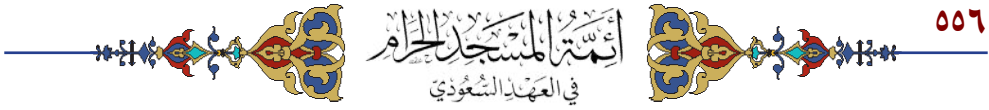 ٥٥٦
أَئِمَّةُ المَسْجِدِ الحَرَامِ
في العَهْدِ السُّعُودِيّ